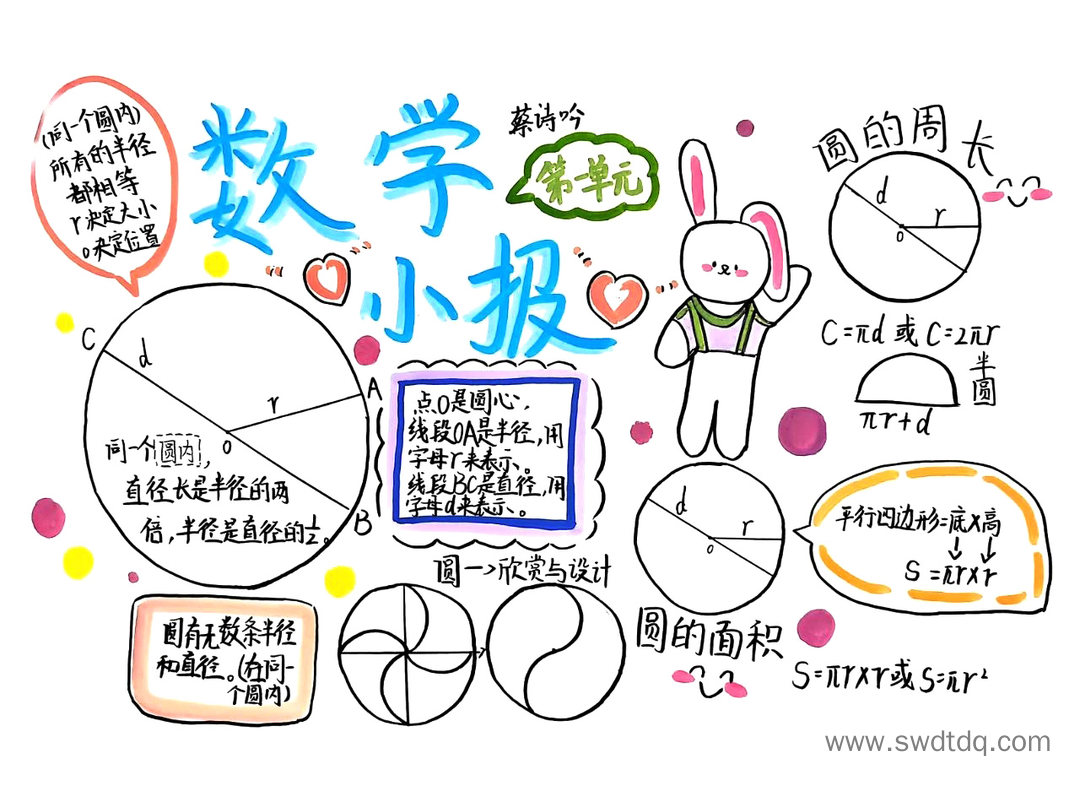 数学
小报
蔡诗吟
第一单元
(同一个圆内)
所有的半径
都相等
r决定大小
o决定位置
C
d
r
A
o
B
同一个圆内,
直径长是半径的两
倍,半径是直径的1/2。
点O是圆心,
线段OA是半径,用
字母r来表示。
线段BC是直径,用
字母d来表示。
圆的周长
d
r
o
C=πd 或 C=2πr
半圆
πr+d
圆有无数条半径
和直径。(在同一
个圆内)
圆→欣赏与设计
d
r
o
平行四边形=底×高
↓ ↓
S=πr×r
圆的面积
S=πr×r或S=πr²
www.swdtdq.com